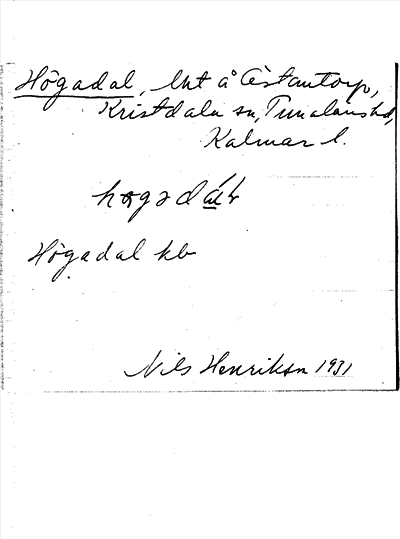 Högadal, lht å Östantorp,
Kristdala sn, Tunaläns hd,
Kalmar l.
Högadal kb
Nils Henrikson 1931